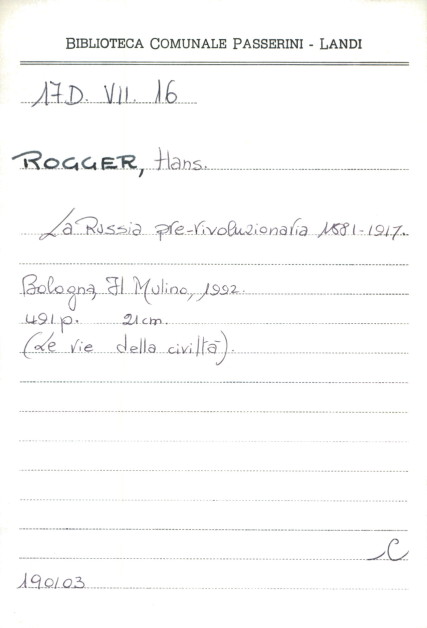 BIBLIOTECA COMUNALE PASSERINI - LANDI
17D. VII. 16
ROGGER, Hans.
La Russia pre-rivoluzionaria 1881-1917.
Bologna, Il Mulino, 1992.
491 p. 21 cm.
(Le vie della civiltà).
C
190103